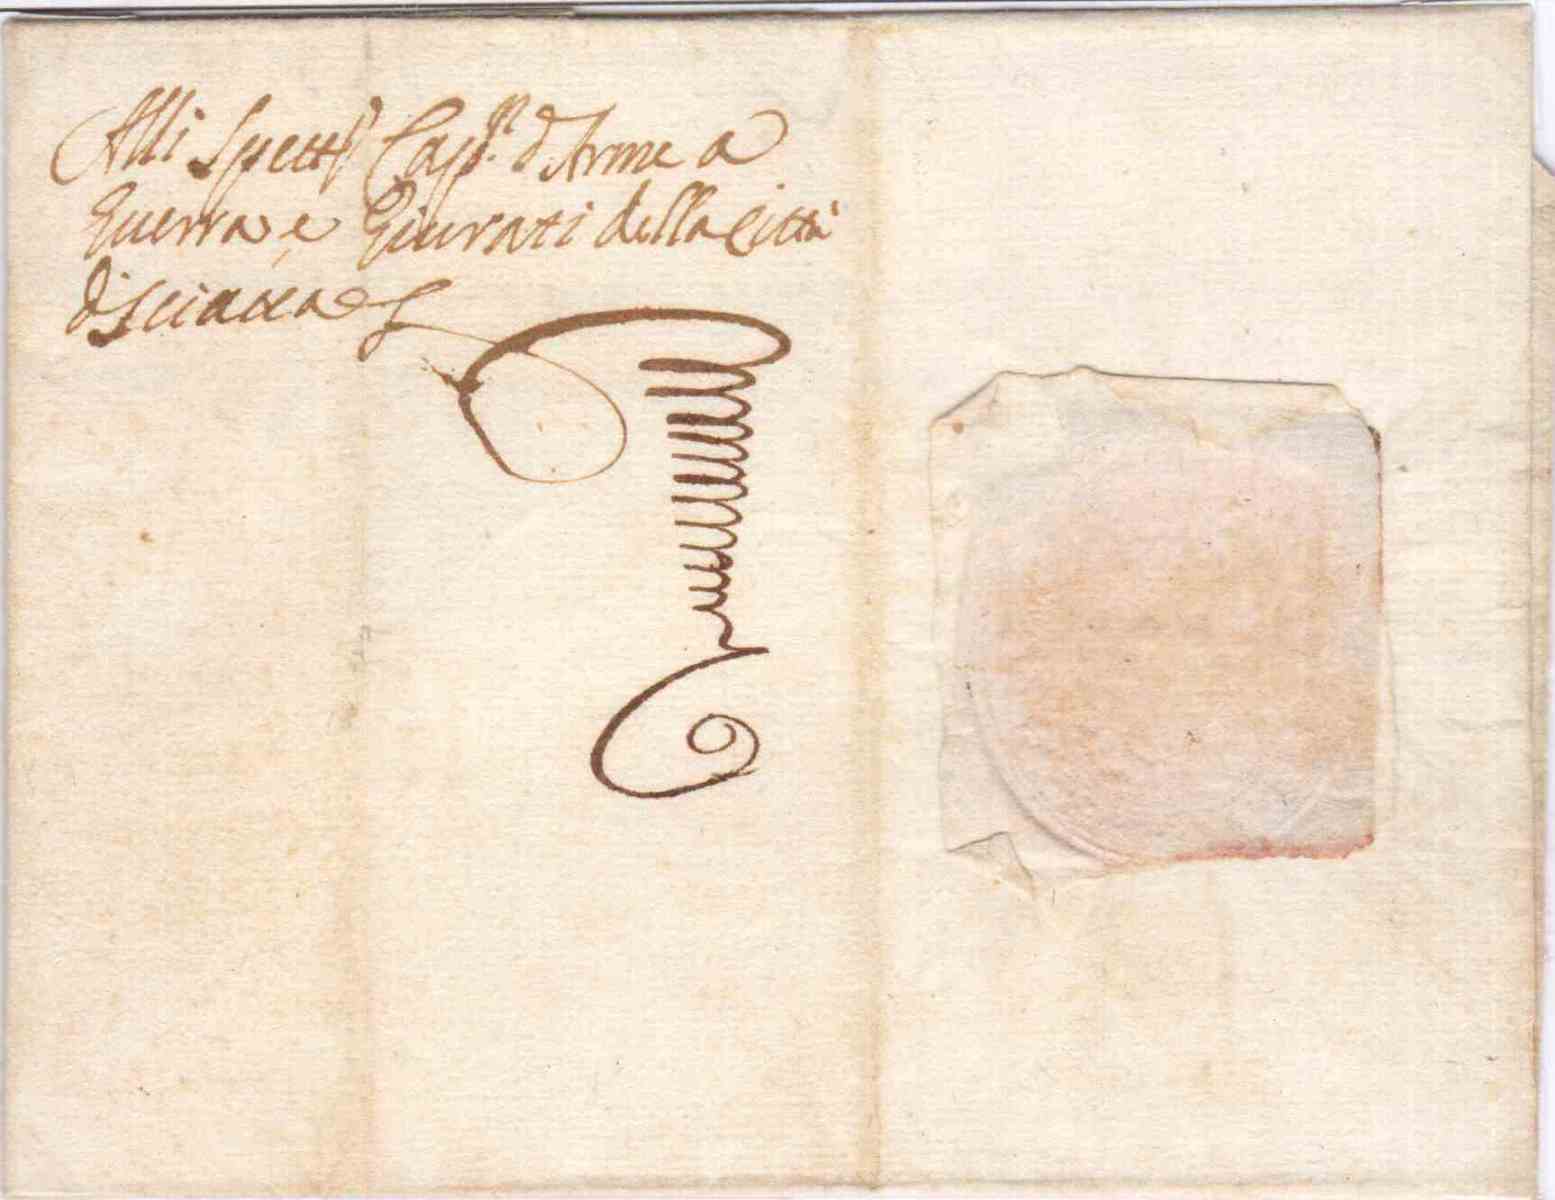 Alli Spett.li Cap.n d'Arme a
Guerra e Giurati della Città
di Sciacca